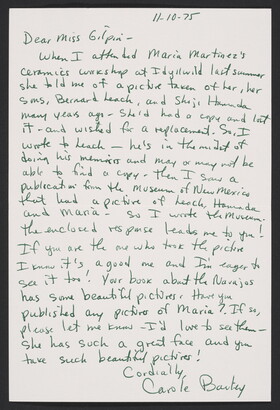 11-10-75
Dear Miss Gilpin -
When I attended Maria Martinez's
ceramics workshop at Idyllwild last summer
she told me of a picture taken of her, her
sons, Bernard Leach, and Shoji Hamada
many years ago - She'd had a copy and lost
it - and wished for a replacement. So, I
wrote to Leach - he's in the midst of
doing his memoirs and may or may not be
able to find a copy - then I saw a
publication from the Museum of New Mexico
that had a picture of Leach, Hamada
and Maria - so I wrote the Museum.
The enclosed response leads me to you!
If you are the one who took the picture
I know it's a good one and I'm eager to
see it too! Your book about the Navajos
has some beautiful pictures. Have you
published any pictures of Maria? If so,
please let me know - I'd love to see them -
she has such a great face and you
take such beautiful pictures!
Cordially,
Carole